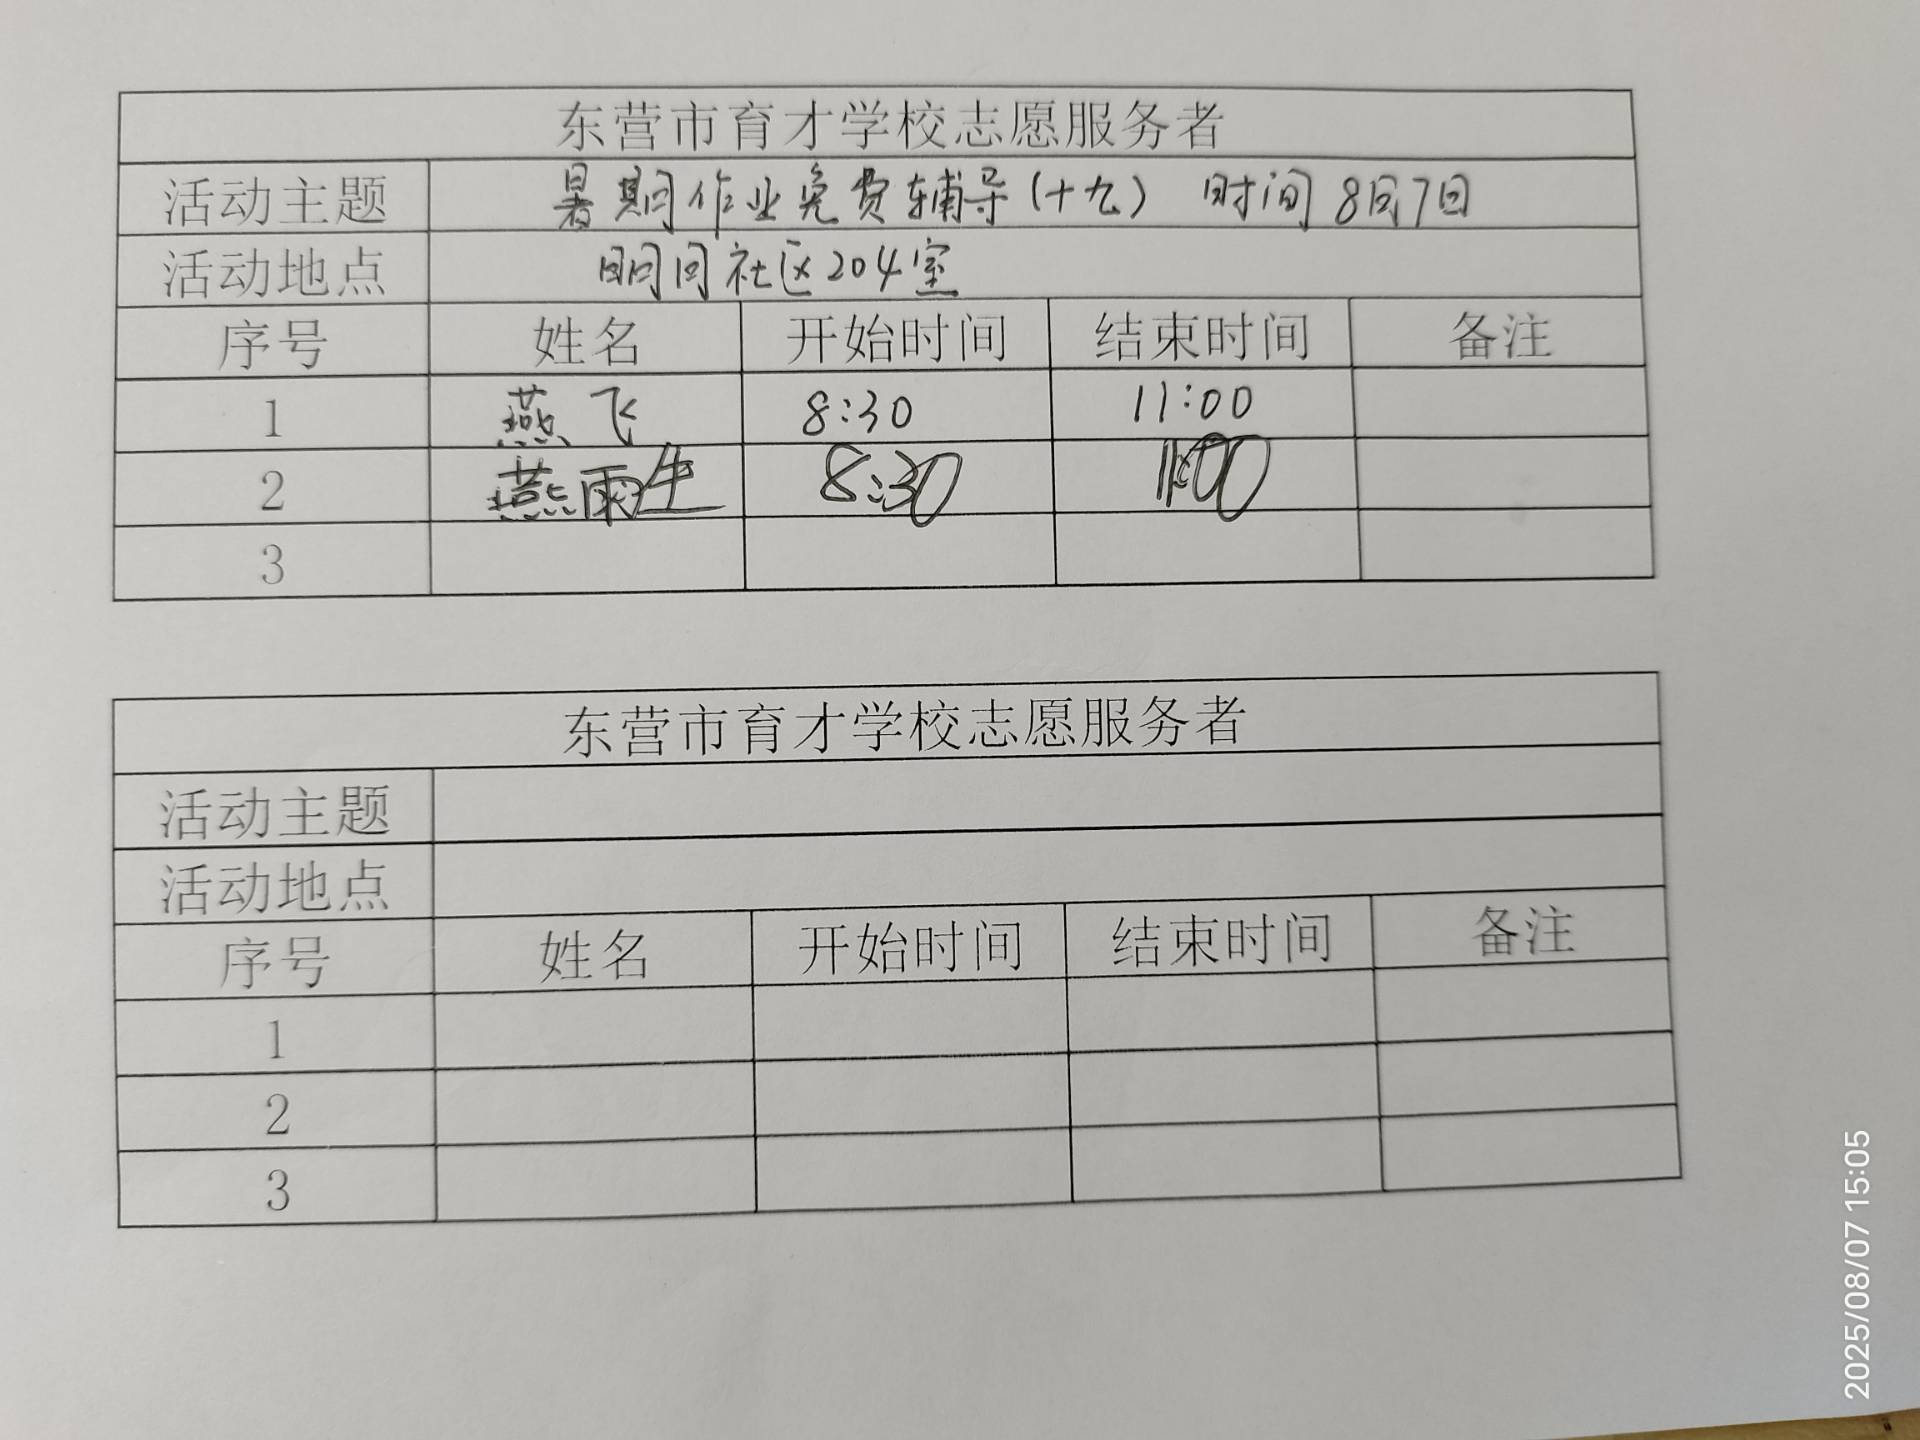 东营市育才学校志愿服务者
活动主题 暑期作业免费辅导(十九) 时间8月7日
活动地点 明月社区204室
序号 姓名 开始时间 结束时间 备注
1 燕飞 8:30 11:00
2 燕雨生 8:30 11:00
3
东营市育才学校志愿服务者
活动主题
活动地点
序号 姓名 开始时间 结束时间 备注
1
2
3
2025/08/07 15:05